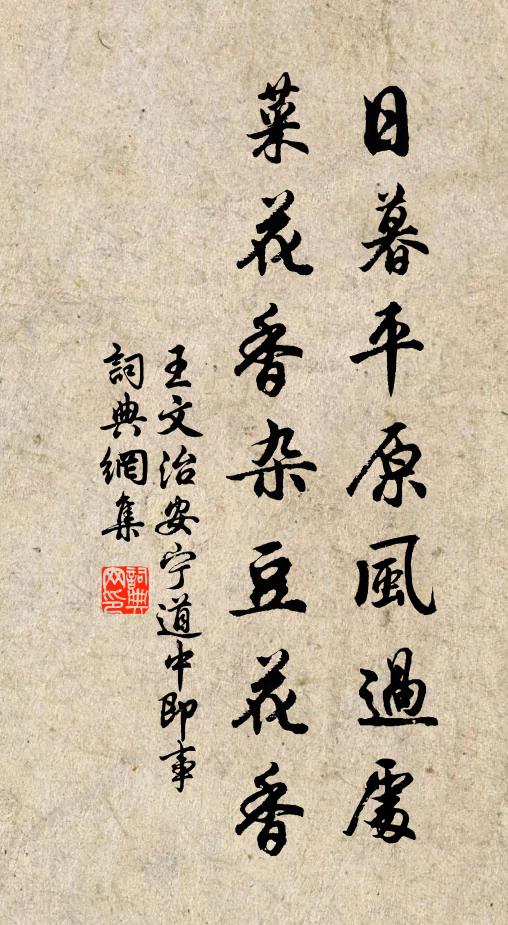 日暮平原風過處
菜花香杂豆花香
王文治安宁道中即事
詞典網集
詞典网印